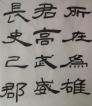 所在為雄
君高武威
長史己郡